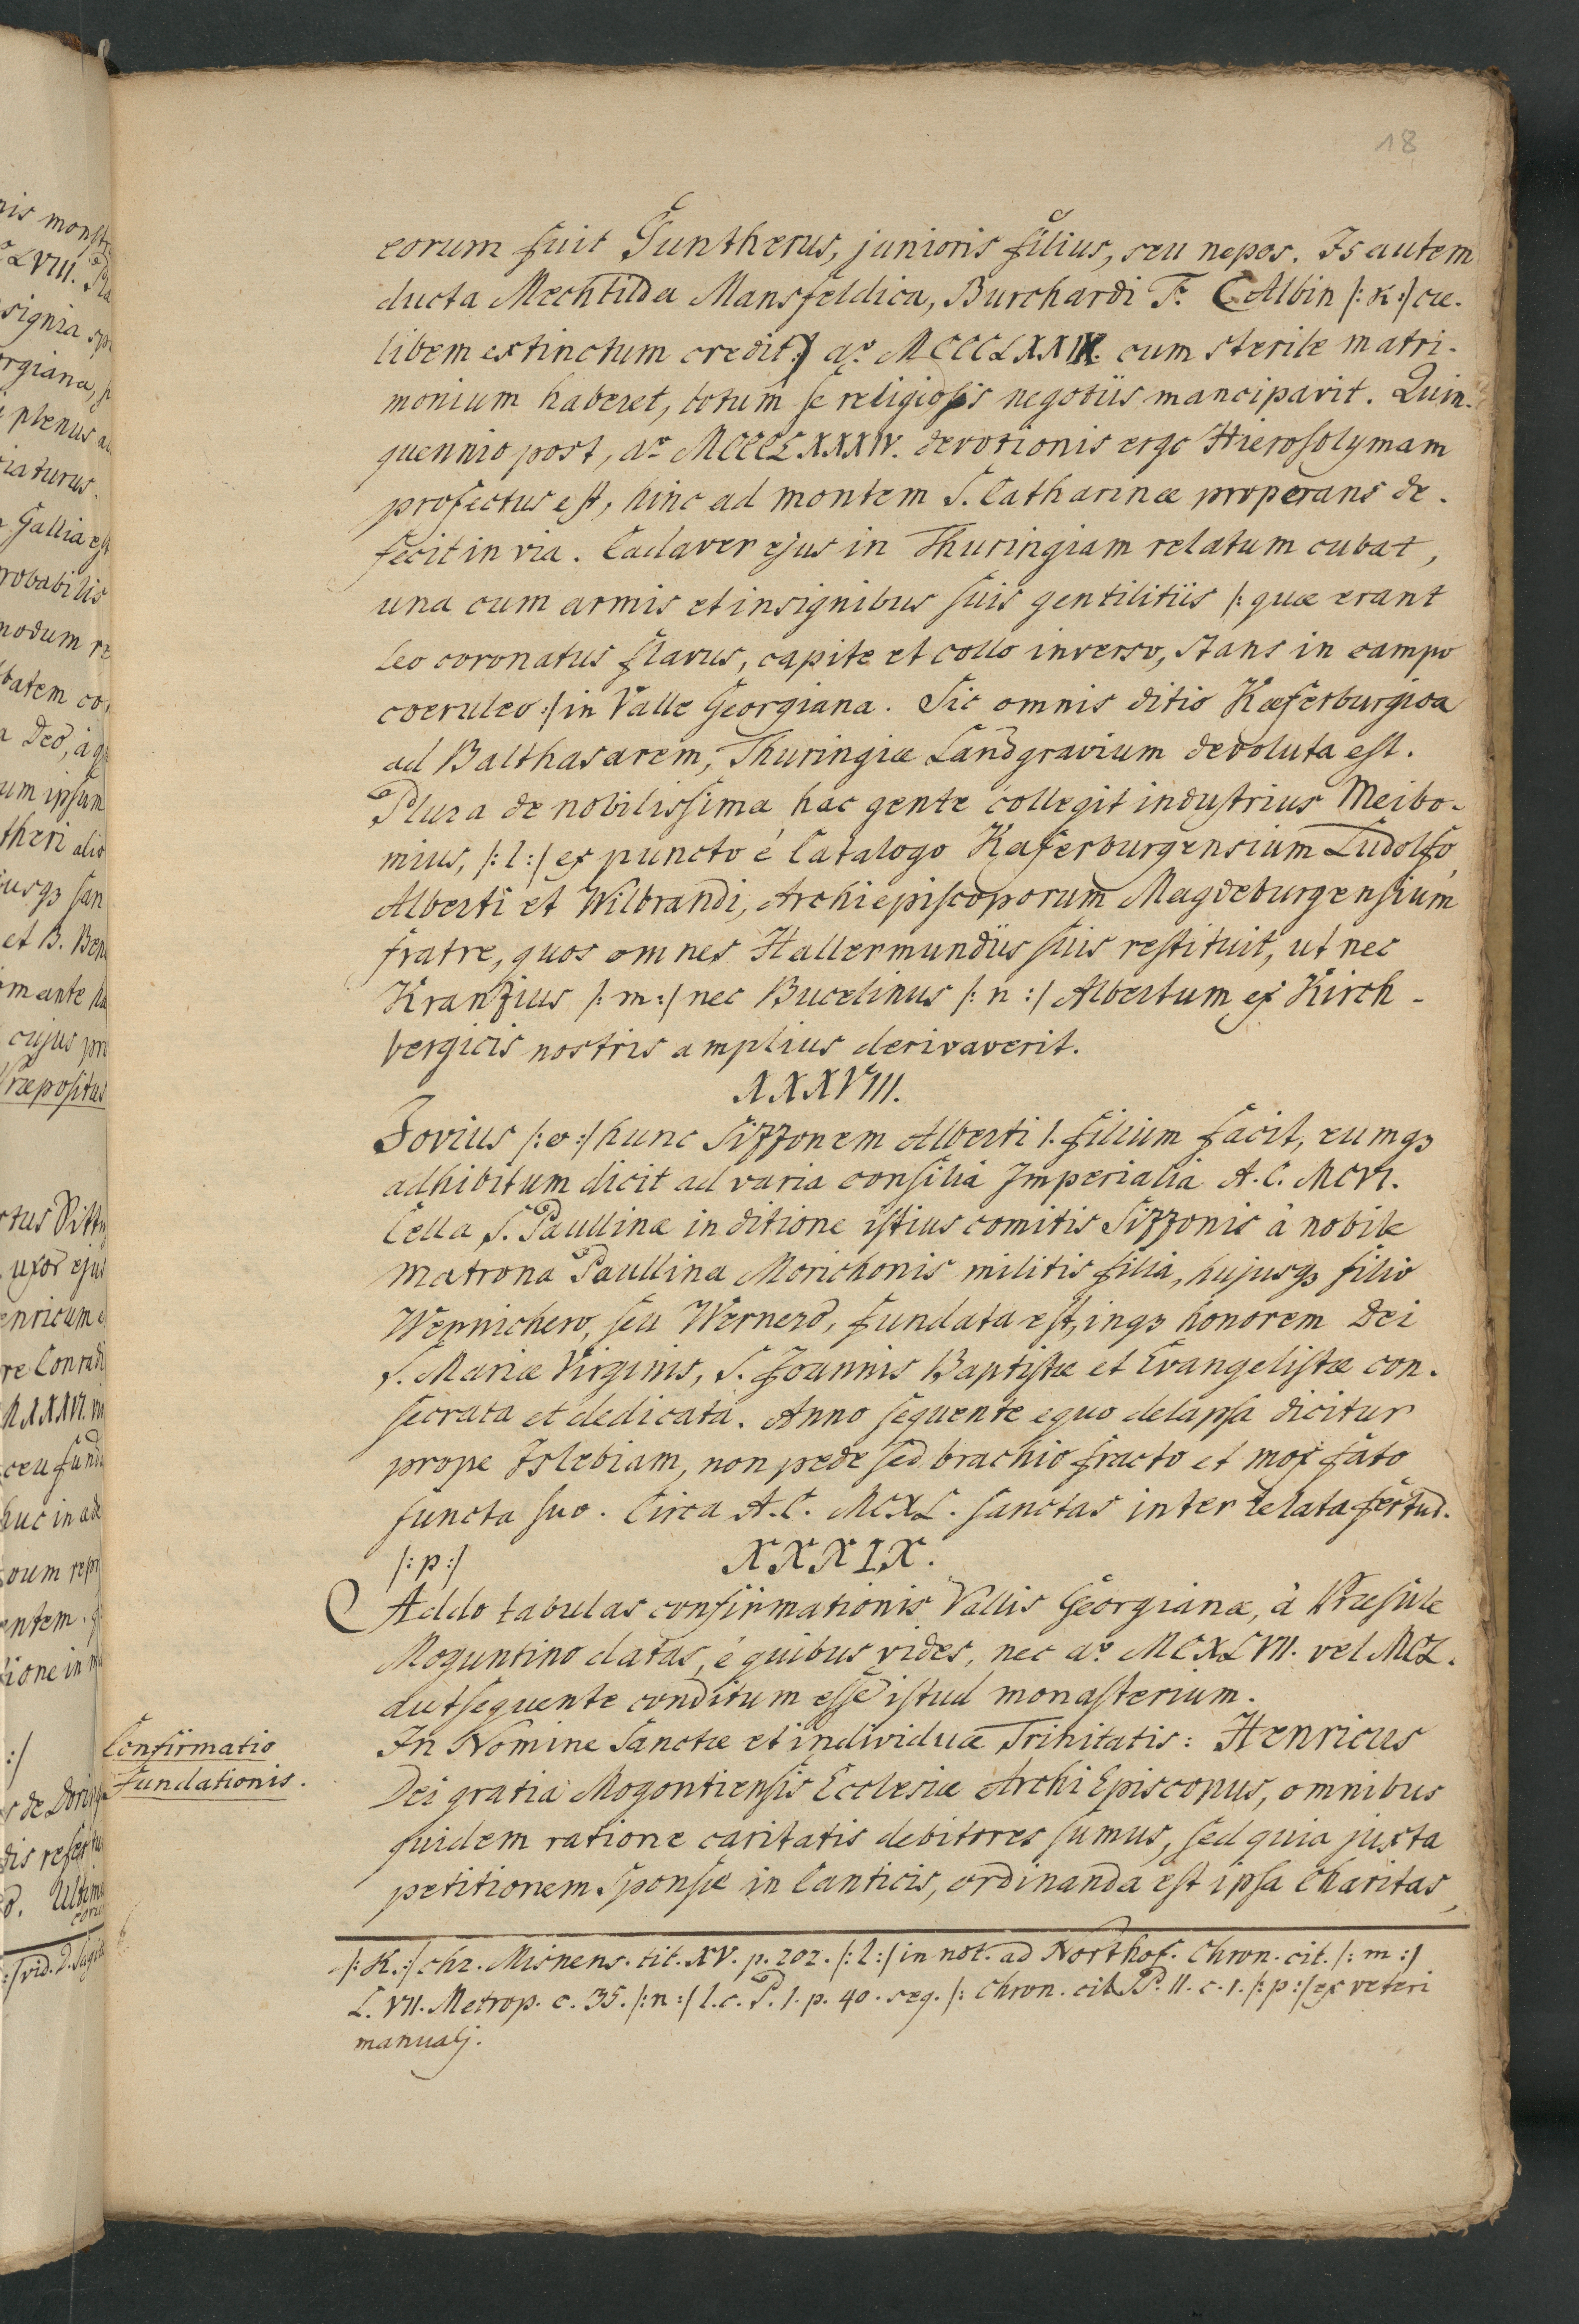 18
eorum fuit Guntherus, junioris filius, seu nepos. Is autem
ducta Mechtilda Mansfeldica, Burchardi F. (Albin /: K :/ cæ-
libem extinctum credit) aº MCCCLXXIX. cum sterile matri-
monium haberet, totum se religiosis negotiis mancipavit. Quin-
quennio post, aº MCCCLXXXIV. devotionis ergo Hierosolymam
profectus est, hinc ad montem S. Catharinæ properans de-
fecit in via. Cadaver ejus in Thuringiam relatum cubat,
una cum armis et insignibus suis gentilitiis /: quæ erant
leo coronatus flavus, capite et collo inverso, stans in campo
coeruleo :/ in Valle Georgiana. Sic omnis ditio Kæferburgica
ad Balthasarem, Thuringiæ Landgravium devoluta est.
Plura de nobilissima hac gente collegit industrius Meibo-
mius, /: l :/ expuncto é Catalogo Kæferburgensium Ludolfo,
Alberti et Wilbrandi, Archiepiscoporum Magdeburgensium
fratre, quos omnes Hallermundiis suis restituit, ut nec
Kranzius /: m :/ nec Bucelinus /: n :/ Albertum ex Kirch-
bergicis nostris amplius derivaverit.
XXXVIII.
Jovius /: o :/ hunc Sizzonem Alberti I. filium facit, eumqꝫ
adhibitum dicit ad varia consilia Imperialia A. C. MCVI.
Cella S. Paullinæ in ditione istius comitis Sizzonis â nobile
matrona Paullina Morichonis militis filia, hujusqꝫ filio
Wernichero, seu Wernero, fundata est, inqꝫ honorem Dei
S. Mariæ Virginis, S. Joannis Baptistæ et Evangelistæ con-
secrata et dedicata. Anno sequente equo delapsa dicitur
prope Islebiam, non pede sed brachio fracto et mox fato
functa suo. Circa A. C. MCXL. sanctas inter relata fertur.
/: p :/ XXXIX.
Addo tabulas confirmationis Vallis Georgianæ, à Præsule
Moguntino datas, é quibus vides, nec aº MCXLVII. vel MCL.
aut sequente conditum esse istud monasterium.
Confirmatio
Fundationis.
In Nomine Sanctæ et individuæ Trinitatis: Henricus
Dei gratia Mogontiensis Ecclesiæ ArchiEpiscopus, omnibus
quidem ratione caritatis debitores sumus, sed quia juxta
petitionem Sponsæ in Canticis, ordinanda est ipsa Charitas,
/: K. :/ chr. Misnens. tit. XV. p. 202. /: l :/ in not. ad Northof. Chron. cit. /: m :/
L. VII. Metrop. c. 35. /: n :/ l. c. P. I. p. 40. seq. /: Chron. cit. P. II. c. 1. /: p :/ ex veteri
manualj.